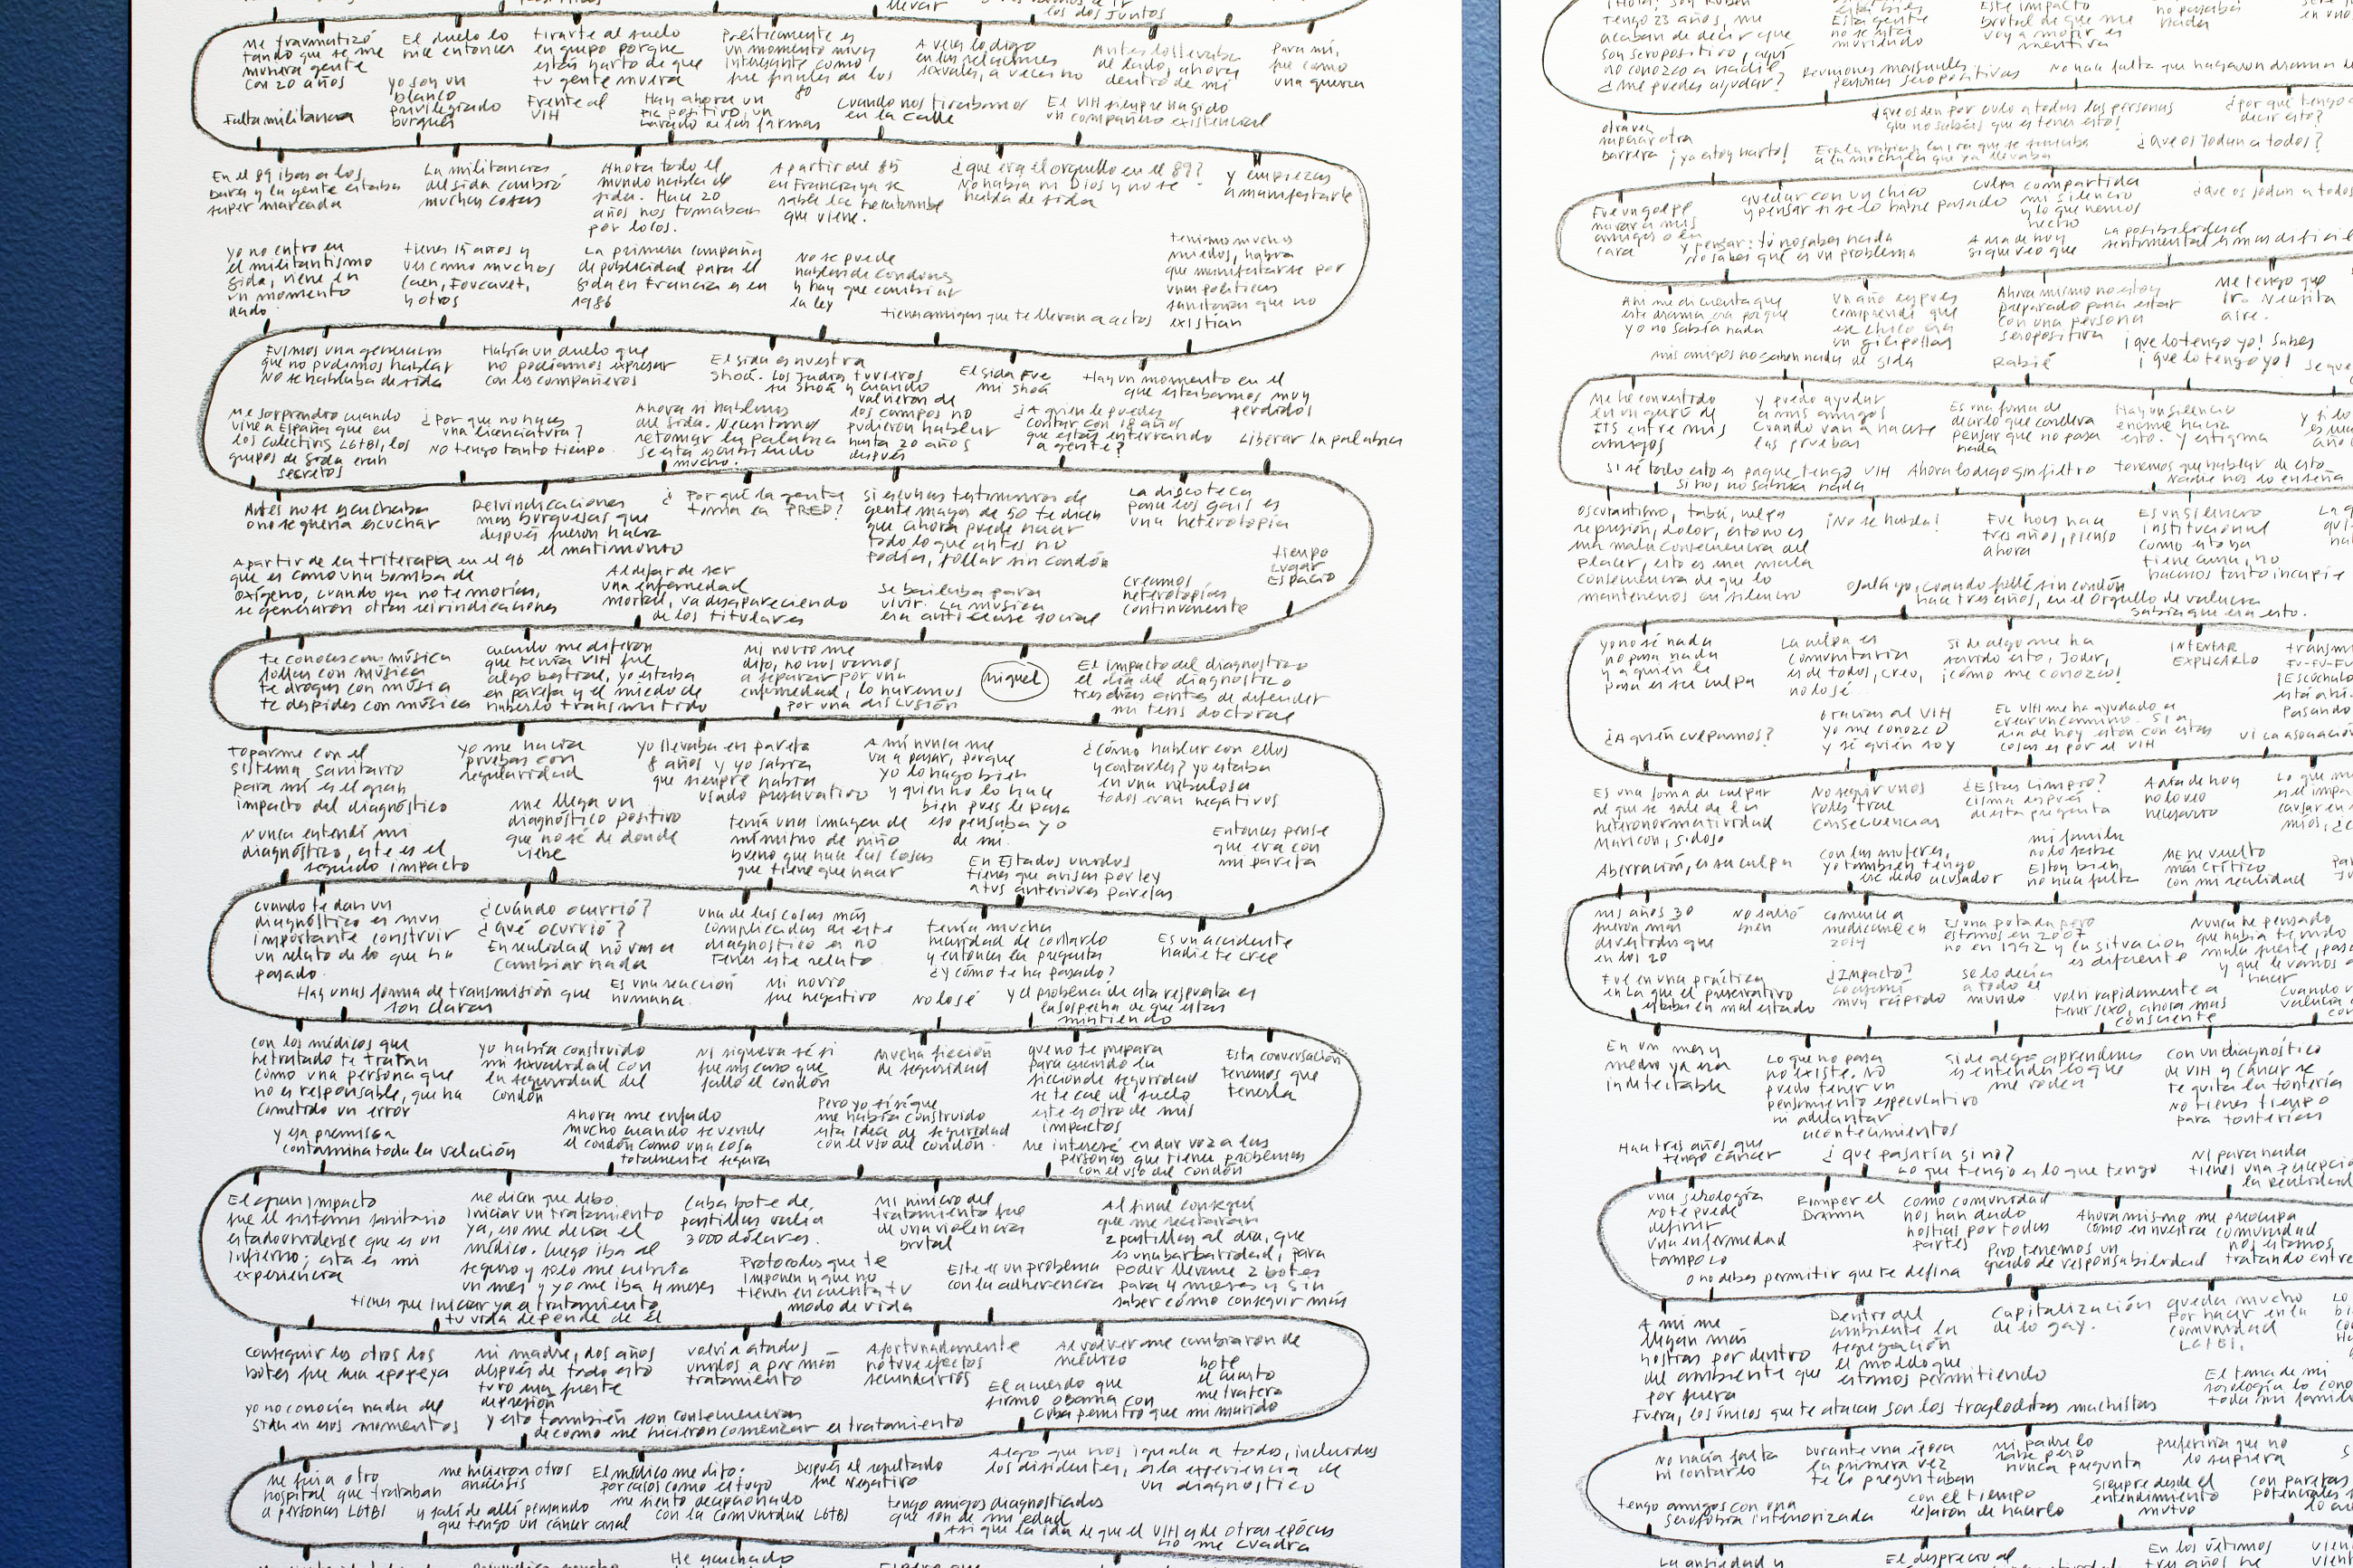 llevar
los dos juntos
Me traumatizó
tando que se me
muriera gente
con 20 años
El duelo lo
hice entonces
tirarte al suelo
en grupo porque
estás harto de que
tu gente muera
Políticamente es
un momento muy
interesante como
fue finales de los
80
A veces lo digo
en las relaciones
sexuales, a veces no
Antes lo llevaba
al lado, ahora
dentro de mí
Para mí,
fue como
una guerra
Falta militancia
yo soy un
blanco
privilegiado
burgués
Frente al
VIH
Hay ahora un
positivo, un
lavado de las farmas
Cuando nos tirábamos
en la calle
El VIH siempre ha sido
un compañero existencial
En el 89 ibas a los
bares y la gente estaba
super marcada
La militancia
del sida cambió
muchas cosas
Ahora todo el
mundo habla de
sida. Hace 20
años nos tomaban
por locos.
A partir del 85
en Francia ya se
sabe la hecatombe
que viene.
¿que era el orgullo en el 89?
No había ni Dios y no se
habla de sida
y empiezas
a manifestarte
yo no entro en
el militantismo
sida, viene en
un momento
dado
tienes 15 años y
ves como muchos
caen, Foucault,
y otros
La primera campaña
de publicidad para el
sida en Francia es en
1986
No se puede
hablar de condones
y hay que cambiar
la ley
tienes amigos que te llevan a actos
teníamos muchos
miedos, había
que manifestarse por
unas políticas
sanitarias que no
existían
Fuimos una generación
que no pudimos hablar
No se hablaba de sida
Había un duelo que
no podíamos expresar
con los compañeros
El sida es nuestra
Shoá. Los judíos tuvieron
su Shoá y cuando
volvieron de
los campos no
pudieron hablar
hasta 20 años
después
El sida fue
mi shoá
Hay un momento en el
que estábamos muy
perdidos
Me sorprendió cuando
vine a España que en
los colectivos LGTBI, los
grupos de sida eran
secretos
¿Por que no haces
una licenciatura?
No tengo tanto tiempo
Ahora sí hablemos
del sida. Necesitamos
retomar la palabra
se está escribiendo
mucho.
¿A quien le puedes
contar con 18 años
que estás enterrando
a gente?
Liberar la palabra
Antes no se escuchaba
o no se quería escuchar
Reivindicaciones
mas burguesas que
después fueron hacia
el matrimonio
¿Por qué la gente
toma la PREP?
Si escuchas testimonios de
gente mayor de 50 te dicen
que ahora puede hacer
todo lo que antes no
podía, follar sin condón
La discoteca
para los gais es
una heterotopía
A partir de la triterapia en el 96
que es como una bomba de
oxígeno, cuando ya no te morías,
se generaron otras reivindicaciones
Al dejar de ser
una enfermedad
mortal, va desapareciendo
de los titulares
Se bailaba para
vivir. La música
era anticlase social
Creamos
heterotopías
continuamente
tiempo
lugar
Espacio
te conoces con música
follas con música
te drogas con música
te despides con música
cuando me dijeron
que tenía VIH fue
algo bestial, yo estaba
en pareja y el miedo de
haberlo transmitido
Mi novio me
dijo, no nos vamos
a separar por una
enfermedad, lo haremos
por una discusión
Miguel
El impacto del diagnostico
el día del diagnóstico
tres días antes de defender
mi tesis doctoral
toparme con el
sistema sanitario
para mí es el gran
impacto del diagnóstico
yo me hacía
pruebas con
regularidad
yo llevaba en pareja
8 años y yo sabía
que siempre había
usado preservativo
A mí nunca me
va a pasar, porque
yo lo hago bien
y quien no lo hace
bien pues le pasa
eso pensaba yo
de mí.
¿cómo hablar con ellos
y contarles? yo estaba
en una nebulosa
todos eran negativos
Nunca entendí mi
diagnóstico, este es el
segundo impacto
me llega un
diagnóstico positivo
que no sé de donde
viene
tenía una imagen de
mí mismo de niño
bueno que hace las cosas
que tiene que hacer
En Estados unidos
tienes que avisar por ley
a tus anteriores parejas
Entonces pensé
que era con
mi pareja
Cuando te dan un
diagnóstico es muy
importante construir
un relato de lo que ha
pasado.
¿Cuándo ocurrió?
¿qué ocurrió?
En realidad no va a
cambiar nada
una de las cosas más
complicadas de este
diagnostico es no
tener este relato
tenía mucha
necesidad de contarlo
y entonces la pregunta
¿y cómo te ha pasado?
Es un accidente
nadie te cree
Hay unas formas de transmisión que
son claras
Es una reacción
humana.
Mi novio
fue negativo
No lo sé
y el problema de esta respuesta es
la sospecha de que estás
mintiendo
Con los médicos que
he tratado te tratan
como una persona que
no es responsable, que ha
cometido un error
yo había construido
mi sexualidad con
la seguridad del
condón
Ni siquiera sé si
fue mi caso que
falló el condón
Mucha ficción
de seguridad
que no te prepara
para cuando la
ficción de seguridad
se te cae al suelo
este es otro de mis
impactos
Esta conversación
tenemos que
tenerla
y esa premisa
contamina toda la relación
Ahora me enfado
mucho cuando se vende
el condón como una cosa
totalmente segura
Pero yo sí sé que
me había construido
esta idea de seguridad
con el uso del condón.
Me interesé en dar voz a las
personas que tienen problemas
con el uso del condón
El gran impacto
fue el sistema sanitario
estadounidense que es un
infierno; esta es mi
experiencia
Me dicen que debo
iniciar un tratamiento
ya, eso me decía el
médico. Luego iba al
seguro y solo me cubría
un mes y yo me iba 4 meses
Cada bote de
pastillas valía
3000 dólares.
Mi inicio del
tratamiento fue
de una violencia
brutal
Al final conseguí
que me recetaran
2 pastillas al día, que
es una barbaridad, para
poder llevarme 2 botes
para 4 meses y sin
saber cómo conseguir más
tienes que iniciar ya el tratamiento
tu vida depende de él
Protocolos que te
imponen y que no
tienen en cuenta tu
modo de vida
Este es un problema
con la adherencia
Conseguir los otros dos
botes fue una epopeya
mi madre, dos años
después de todo esto
tuvo una fuerte
depresión
volví a estados
unidos a por más
tratamiento
Afortunadamente
no tuve efectos
secundarios
Al volver me cambiaron de
médico
El acuerdo que
firmó Obama con
Cuba permitió que mi marido
bote
el cuarto
me trajera
yo no conocía nada del
sida en esos momentos
y esto también son consecuencias
de como me hicieron comenzar el tratamiento
Me fui a otro
hospital que trataban
a personas LGTBI
me hicieron otros
análisis
y salí de allí pensando
que tengo un cáncer anal
El médico me dijo:
por casos como el tuyo
me siento decepcionado
con la comunidad LGTBI
Después el resultado
fue negativo
Algo que nos iguala a todos, incluidos
los disidentes, es la experiencia de
un diagnóstico
tengo amigos diagnosticados
que son de mi edad
Así que la idea de que el VIH es de otras épocas
no me cuadra
He escuchado
¡Hola! soy Rubén
tengo 23 años, me
acaban de decir que
soy seropositivo, aquí
no conozco a nadie
¿me puedes ayudar?
Esta gente
no se está
muriendo
Este impacto
brutal de que me
voy a morir es
mentira
no pasaba
nada
Reuniones mensuales
personas seropositivas
No hace falta que hagamos drama
otra vez
superar otra
barrera
¡ya estoy harto!
¡que os den por culo a todas las personas
que no sabéis que es tener esto!
¿por qué tengo
decir esto?
Era la rabia y la ira que se sumaba
a la mochila que ya llevaba
¿Que os jodan a todos?
Fue un golpe
mirar a mis
amigos a la
cara
quedar con un chico
y pensar si se lo habré pasado
Culpa compartida
mi silencio
y lo que hemos
hecho
¿que os jodan a todos
y pensar: tú no sabes nada
no sabes que es un problema
A día de hoy
sigo creo que
La posibilidad
sentimental es más difícil
Ahí me di cuenta que
este drama era porque
yo no sabía nada
Un año después
comprendí que
ese chico era
un gilipollas
Ahora mismo no estoy
preparado para estar
con una persona
seropositiva
Me tengo que
ir. Necesita
aire.
mis amigos no saben nada de sida
Rabié
¡que lo tengo yo! Sabes
¡que lo tengo yo!
Me he convertido
en un gurú de
ITS entre mis
amigos
y puedo ayudar
a mis amigos
cuando van a hacerse
las pruebas
Es una forma de
decirlo que conlleva
pensar que no pasa
nada
Hay un silencio
enorme hacia
esto. y estigma
Si sé todo esto es porque tengo VIH
si no, no sabría nada
Ahora lo digo sin filtro
tenemos que hablar de esto
Nadie nos lo enseña
oscurantismo, tabú, culpa
represión, dolor, esto no es
una mala consecuencia del
placer, esto es una mala
consecuencia de que lo
mantenemos en silencio
¡No se habla!
Fue hoy hace
tres años, pienso
ahora
Es un silencio
institucional
como esto no
tiene cura, no
hacemos tanto incapié
Ojalá yo, cuando follé sin condón
hace tres años, en el Orgullo de valencia
sabía que era esto.
yo no sé nada
no pasa nada
y a quien le
pasa es su culpa
La culpa es
comunitaria
es de todos, creo,
no lo sé
Si de algo me ha
servido esto, Joder,
¡cómo me conozco!
INTENTAR
EXPLICARLO
¡Escúchalo
está ahí.
Pasando
¿A quién culpamos?
Gracias al VIH
yo me conozco
y sé quién soy
El VIH me ha ayudado a
crear un camino. Si a
día de hoy estoy con estas
cosas es por el VIH
Vi la asociación
Es una forma de culpar
al que se sale de la
heteronormatividad
Maricón, sidoso
No seguir unos
roles trae
consecuencias
¿Estás limpio?
cisma después
de esta pregunta
A día de hoy
no lo veo
necesario
Aberración, es su culpa
con las mujeres,
yo también tengo
ese dedo acusador
mi familia
no lo sabe
Estoy bien
no hace falta
Me he vuelto
más crítico
con mi realidad
Mis años 30
fueron más
divertidos que
en los 20
No salió
bien
Comencé a
medicarme en
2014
Es una putada pero
estamos en 2007
no en 1992 y la situación
es diferente
Nunca he pensado
que había tenido
mala suerte, pasó
y que le vamos a
hacer
Fue en una práctica
en la que el preservativo
estaba en mal estado
¿Impacto?
muy rápido
se lo decía
a todo el
mundo
Volví rapidamente a
tener sexo, ahora mas
consciente
En un mes y
medio ya era
indetectable
Lo que no pasa
no existe. No
puedo tener un
pensamiento especulativo
ni adelantar
acontecimientos
Si de algo aprendemos
es entender lo que
me rodea
con un diagnóstico
de VIH y cáncer se
te quita la tontería
No tienes tiempo
para tonterías
Hace tres años que
tengo cáncer
¿qué pasaría si no?
Lo que tengo es lo que tengo
Ni para nada
tienes una percepción
la realidad
una serología
no te puede
definir
una enfermedad
tampoco
o no debes permitir que te defina
Romper el
Drama
Como comunidad
nos han dado
hostias por todas
partes
Ahora mismo me preocupa
como en nuestra comunidad
nos estamos
tratando entre
Pero tenemos un
grado de responsabilidad
A mi me
llegan más
hostias por dentro
del ambiente que
por fuera
Dentro del
ambiente la
segregación
el molde que
estamos permitiendo
Capitalización
de lo gay.
queda mucho
por hacer en la
comunidad
LGTBI,
Fuera, los únicos que te atacan son los trogloditas machistas
El tema de mi
serología lo cono
toda mi familia
No hacía falta
ni contarlo
Durante una época
la primera vez
te lo preguntaban
mi padre lo
sabe pero
nunca pregunta
preferiría que no
lo supiera
tengo amigos con una
serofobia interiorizada
con el tiempo
dejaron de hacerlo
Siempre desde el
entendimiento
mutuo
con parejas
potenciales
La ansiedad y
El desprecio al
En los últimos
tres años he